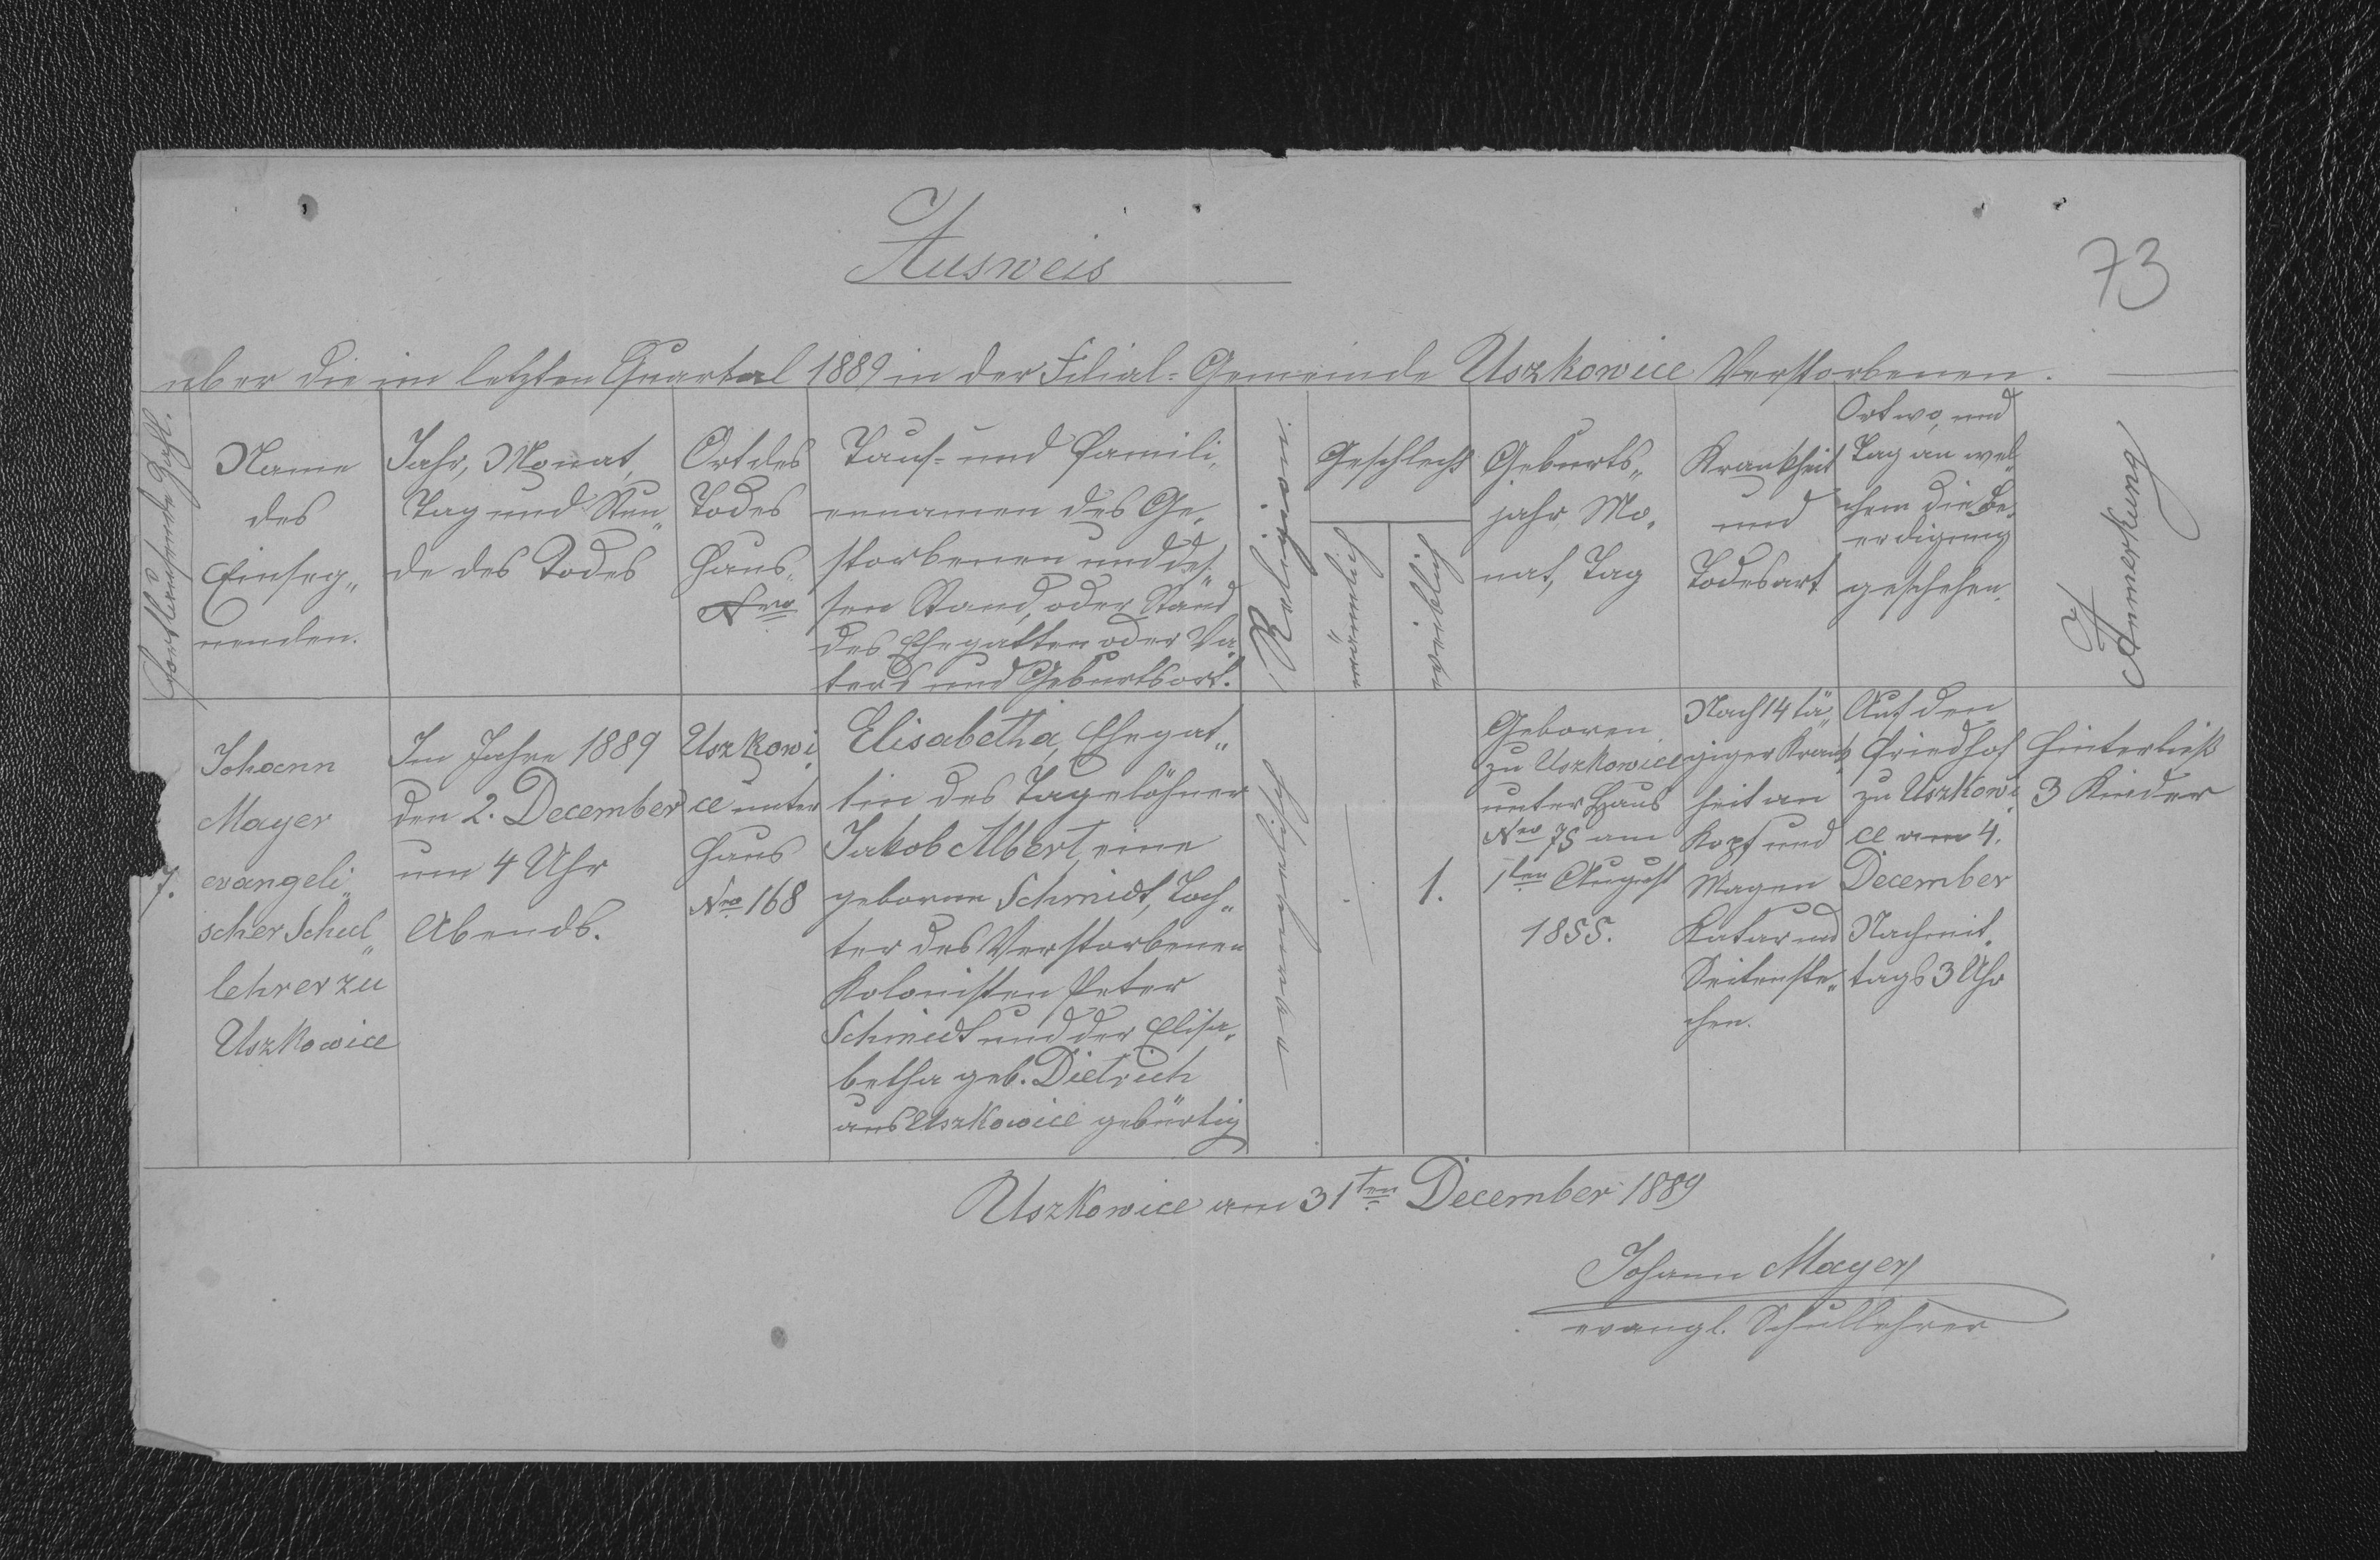 Ausweis
73
über die im letzten Quartal 1889 in der Filial-Gemeinde Uszkowice Verstorbenen.
Fortlaufende Zahl.
Name
des
Einseg„
nenden.
Jahr, Monat,
Tag und Stun„
de des Todes
Ort des
Todes
Haus„
Nro
Tauf- und Famili„
ennamen des Ge„
storbenen und des„
sen Stand, oder Stand
des Ehegatten oder Va„
ters und Geburtsort.
Religion.
Geschlecht
männlich
weiblich
Geburts„
jahr, Mo„
nat, Tag
Krankheit
und
Todesart
Ort wo, und
Tag an wel„
chem die Be„
erdigung
geschehen.
Anmerkung
7.
Johann
Mayer
evangeli„
scher Schul„
lehrer zu
Uszkowice
Im Jahre 1889
den 2. December
um 4 Uhr
Abends.
Uszkowi„
ce unter
Haus
Nro 168
Elisabetha, Ehegat„
tin des Tagelöhner
Jakob Albert, eine
geborne Schmidt, Toch„
ter des Verstorbenen
Kolonisten Peter
Schmidt und der Elisa„
betha geb. Dietrich
aus Uszkowice gebürtig
evangelisch
1.
Geboren
zu Uszkowice
unter Haus
Nro 75 am
1ten August
1855.
Nach 14 tä„
giger Krank„
heit an
Kopf und
Magen
Katar und
Seitenste„
chen.
Auf den
Friedhof
zu Uszkowi„
ce am 4.
December
Nachmit„
tags 3 Uhr
Hinterließ
3 Kinder
Uszkowice am 31ten December 1889
Johann Mayer
evangl. Schullehrer